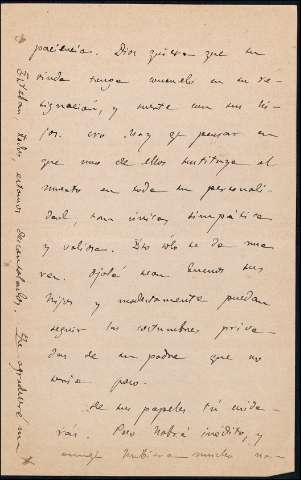 paciencia. Dios quiera que su
viuda tenga consuelo en su re-
signación, y suerte con sus hi-
jos. No hay q pensar en
que uno de ellos sustituya al
muerto en toda su personali-
dad, tan única, simpática
y valiosa. Eso sólo se da una
vez. Ojalá sean buenos sus
hijos y modestamente puedan
seguir las costumbres priva-
das de un padre que no
tenía pero.
De sus papeles tú cuida-
rás. Poco habrá inédito, y
aunque hubiera mucho no
Esteban, todos estamos desconsolados. Le agradeceré me